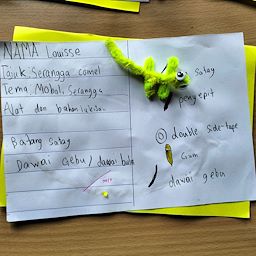 NAMA Louisse
Tajuk, Serangga comel
Tema, Mobol, Serangga
Alat dan bahan
Batang satay
Dawai Gebu / dawai bulu
satay
penyepit
double side-tape
Gum
dawai gebu